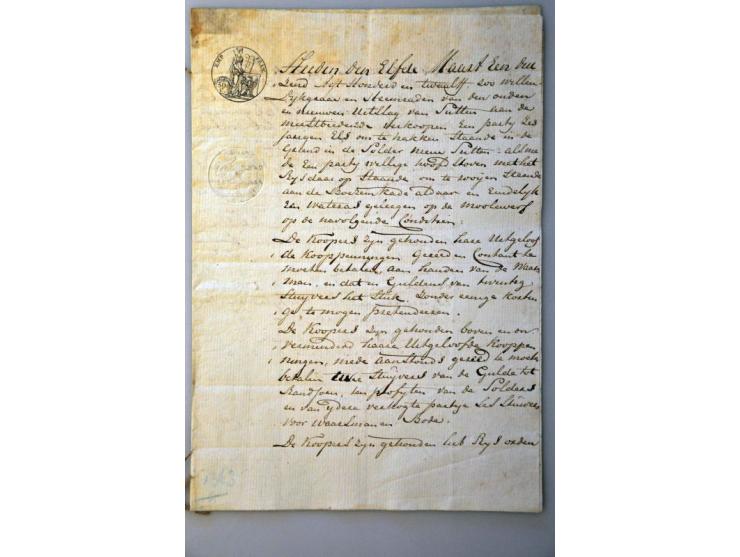 EMP FRAN
Heeden den Elfde Maart Een duı
zend Agt Honderd en twaelff, zoo willen
Dykgraaf en Heemraden van den ouden
en nieuwen Uitslag van Putten aan de
meestbiedende verkoopen Een party
jarigen Els om te hakken staande in de
in de Polder nieuw Putten alsme
de Een party willige hoofd stoven met het
Rysdaar op Staande om te rooijen staande
aan de kade aldaar en Eindelyk
Een Waterad gelegen op de moolewerf
op de navolgende Conditien
De Koopers zyn gehouden haare Uitgeloof
de Kooppenningen Gereed en Contant te
moeten betalen aan handen van de Waars
man, en dat en Guldens van twinteg
Stuyvers het Stuk, Zonder eenige korten
ge te mogen pretenderen.
De Koopers Zyn gehouden boven en on
vermindert haare Uitgeloofde Kooppen
ningen, mede aanstonds gereed te moeten
betalen twee Stuyvers van de Gulde tot
Randsoen, ten profyten van de Polders
en van ydere verkogte partye Ses Stuivers
voor Waarsman en Bode.
De Koopers zyn gehouden het Rys en den
1363